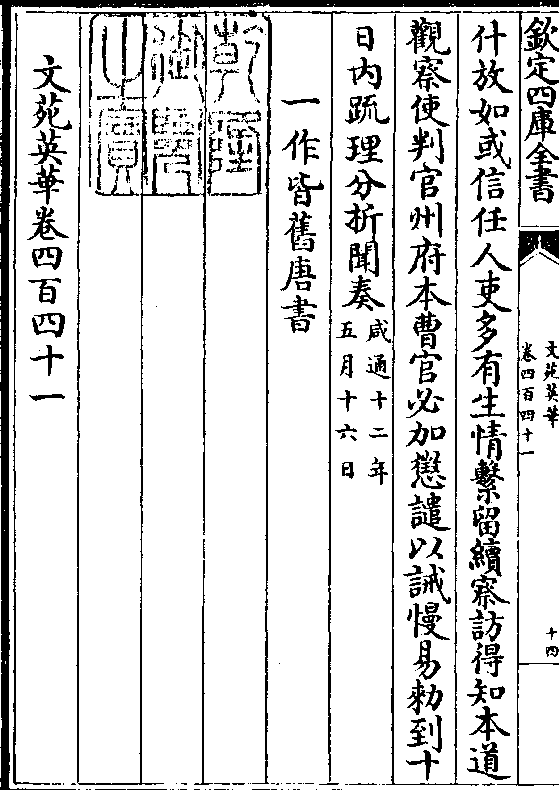 欽定四庫全書
文苑英華
卷四百四十一
十四
什放如或信任人吏多有生情繫留續察訪得知本道
觀察使判官州府本曹官必加懲譴以誡慢易勑到十
日內疏理分析聞奏
咸通十二年
五月十六日
一作皆舊唐書
乾隆
御覽
之寶
文苑英華卷四百四十一